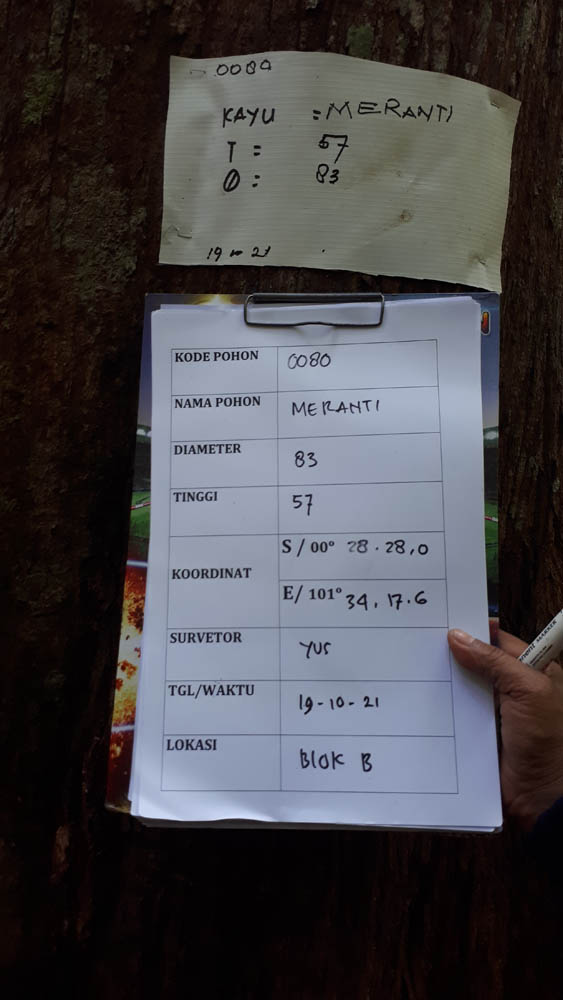 0080
KAYU = MERANTI
T = 57
Ø = 83
19 10 21
KODE POHON 0080
NAMA POHON MERANTI
DIAMETER 83
TINGGI 57
KOORDINAT
S / 00° 28.28,0
E/ 101° 34.17.6
SURVETOR YUS
TGL/WAKTU 19-10-21
LOKASI Blok B